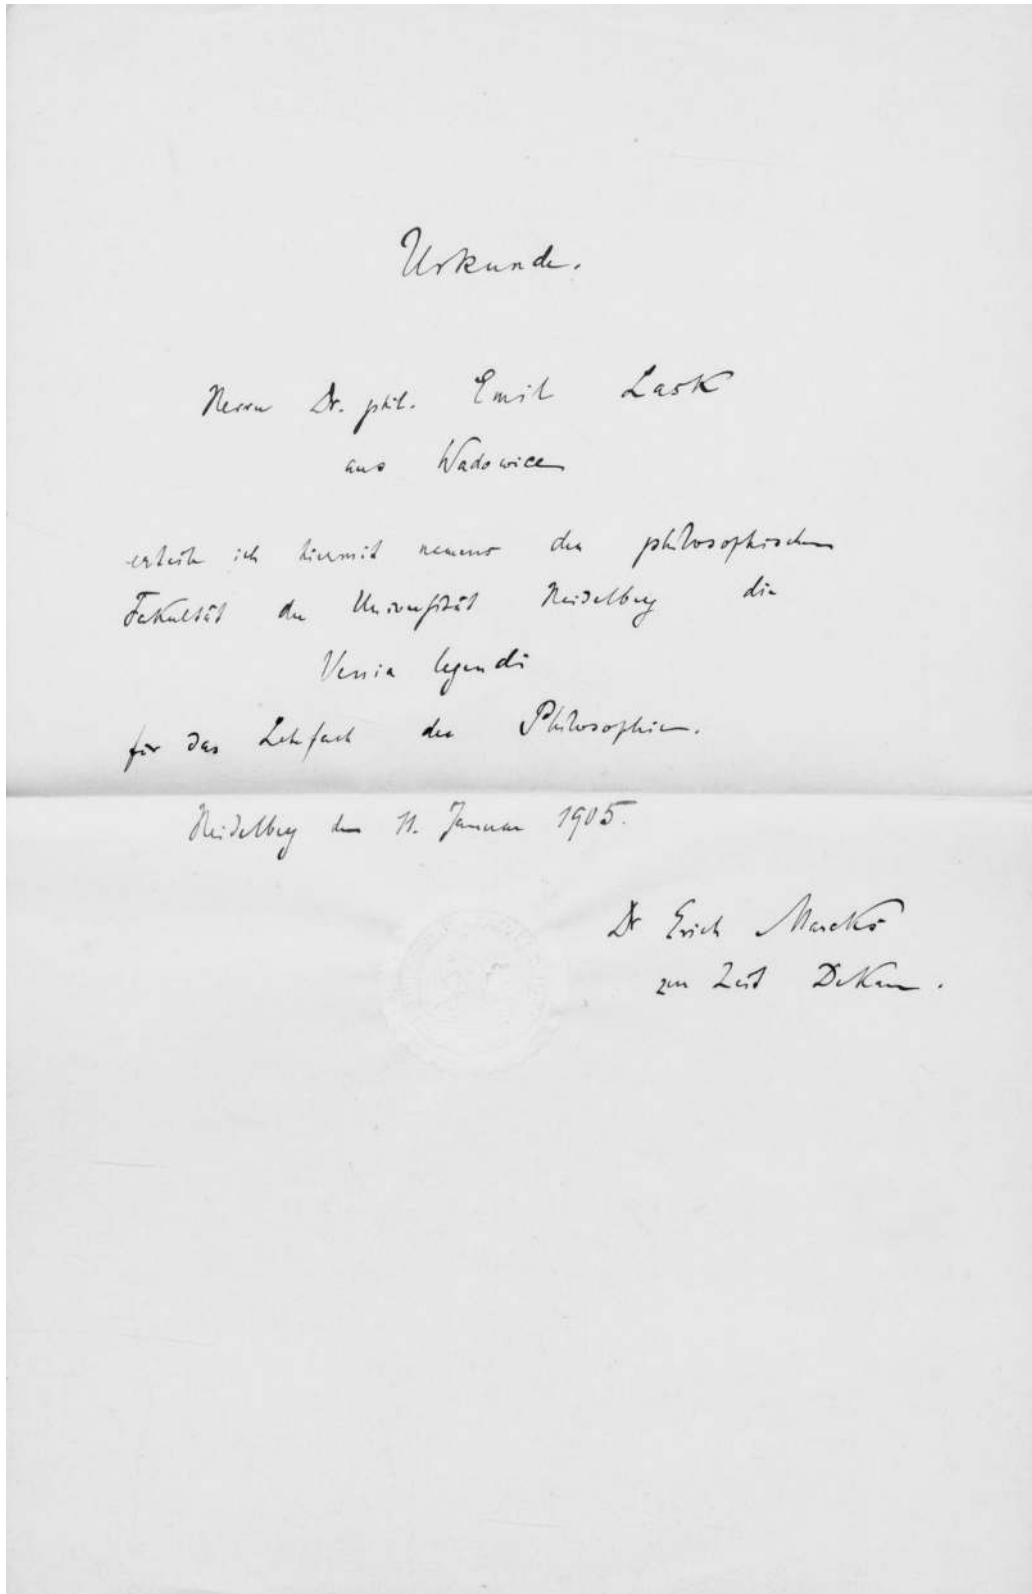 Urkunde.
Herrn Dr. phil. Emil Lask
aus Wadowice
erteile ich hiermit namens der philosophischen
Fakultät der Universität Heidelberg die
Venia legendi
für das Lehrfach der Philosophie.
Heidelberg den 11. Januar 1905.
Dr Erich Marcks
zur Zeit Dekan.